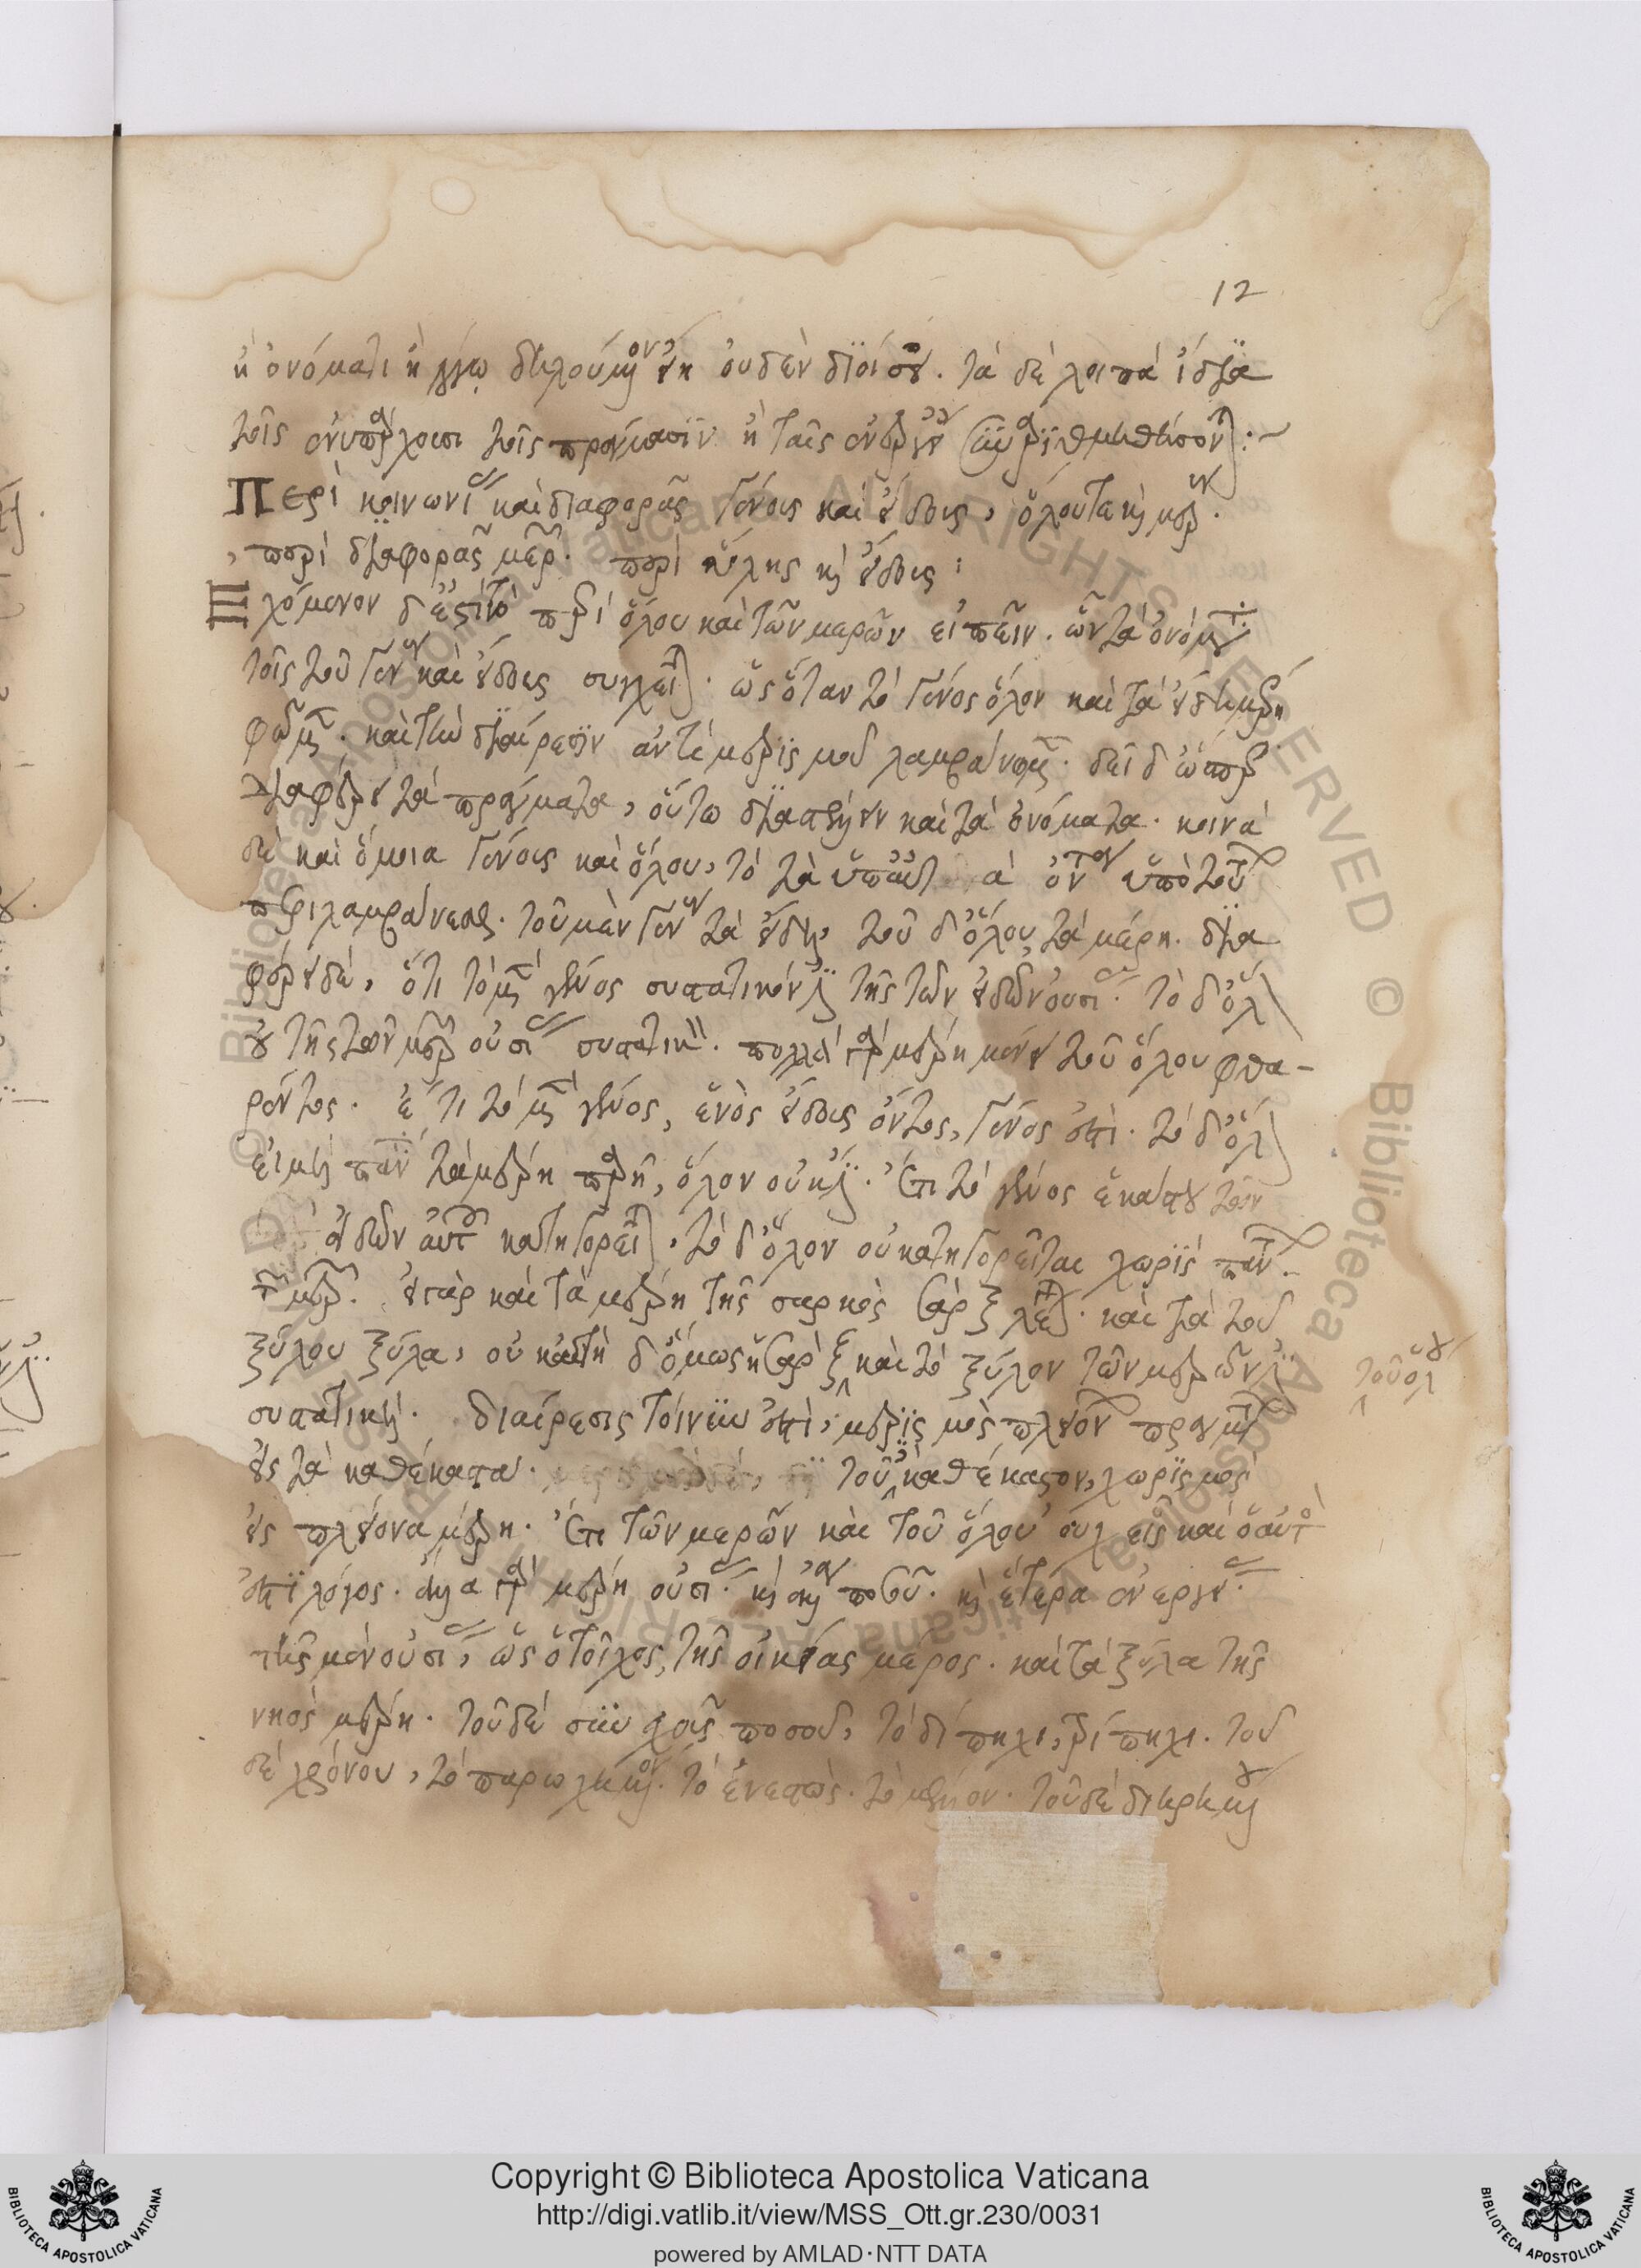 12
ἢ ὀνόματι ἢ λόγῳ δηλούμενον εἴη οὐδὲν διοίσει. τὰ δὲ λοιπὰ ἰδία
τοῖς ἐνυπάρχουσι τοῖς πράγμασιν ἢ ταῖς
Περὶ κοινωνίας καὶ διαφορᾶς γένους καὶ εἴδους, ὅλου τε καὶ μέρους.
περὶ διαφορᾶς μερῶν. περὶ ὕλης καὶ εἴδους:
λόμενον δ' ἐστὶ τὸ περὶ ὅλου καὶ τῶν μερῶν εἰπεῖν. ὧν τὰ ὀνόματα
τοῖς τοῦ γένους καὶ εἴδους συγχεῖται. ὡς ὅταν τὸ γένος ὅλον καὶ τὰ εἴδη μέρη
φῶμεν. καὶ τὴν διαίρεσιν ἀντὶ μερισμοῦ λαμβάνωμεν. δεῖ δ' ὥσπερ
διαφέρει τὰ πράγματα, οὕτω διαστέλλειν καὶ τὰ ὀνόματα. κοινὰ
δὲ καὶ ὅμοια γένους καὶ ὅλου, τὸ τὰ ὑπ' αὐτὰ ὄντα ὑπὸ τούτων
περιλαμβάνεσθαι. τοῦ μὲν γένους τὰ εἴδη, τοῦ δ' ὅλου τὰ μέρη. δια
φέρει δὲ, ὅτι τὸ μὲν γένος συστατικόν ἐστι τῆς τῶν εἰδῶν οὐσίας. τὸ δ' ὅλον
οὐ τῆς τῶν μερῶν οὐσίας συστατικόν. πολλὰ γὰρ μέρη μένει τοῦ ὅλου φθα-
ρέντος. ἔτι τὸ μὲν γένος, ἑνὸς εἴδους ὄντος, γένος ἐστὶ. τὸ δ' ὅλον
εἰ μὴ πάντα τὰ μέρη παρῇ, ὅλον οὐκ ἔστι. ἔτι τὸ γένος ἑκάστου τῶν
εἰδῶν αὐτοῦ κατηγορεῖται. τὸ δ' ὅλον οὐ κατηγορεῖται χωρὶς πάντων
τῶν μερῶν. εἰ γὰρ καὶ τὰ μέρη τῆς σαρκὸς σὰρξ λέγεται. καὶ τὰ τοῦ
ξύλου ξύλα, οὐκ ἔστι δ' ὅμως ἡ σὰρξ καὶ τὸ ξύλον τῶν μερῶν ἐστι
τοῦ ὅλου
συστατική. διαίρεσις τοίνυν ἐστὶ, μερισμὸς πλειόνων πραγμάτων
εἰς τὰ καθέκαστα. τοῦ καθέκαστον, χωρισμὸς
εἰς πλείονα μέρη. ἔτι τῶν μερῶν καὶ τοῦ ὅλου οὐχ εἷς καὶ ὁ αὐτὸς
ἐστὶ λόγος. ἄλλα γὰρ μέρη οὐσίας. καὶ ἄλλα ποσοῦ. καὶ ἕτερα ἐνεργείας.
τῆς μὲν οὐσίας, ὡς ὁ τοῖχος, τῆς οἰκίας μέρος. καὶ τὰ ξύλα τῆς
νηὸς μέρη. τοῦ δὲ συνεχοῦς ποσοῦ, τὸ δίπηχυ, τρίπηχυ. τοῦ
δὲ χρόνου, τὸ παρῳχημένον. τὸ ἐνεστὼς. τὸ μέλλον. τοῦ δὲ διῃρημένου
Copyright © Biblioteca Apostolica Vaticana
http://digi.vatlib.it/view/MSS_Ott.gr.230/0031
powered by AMLAD·NTT DATA